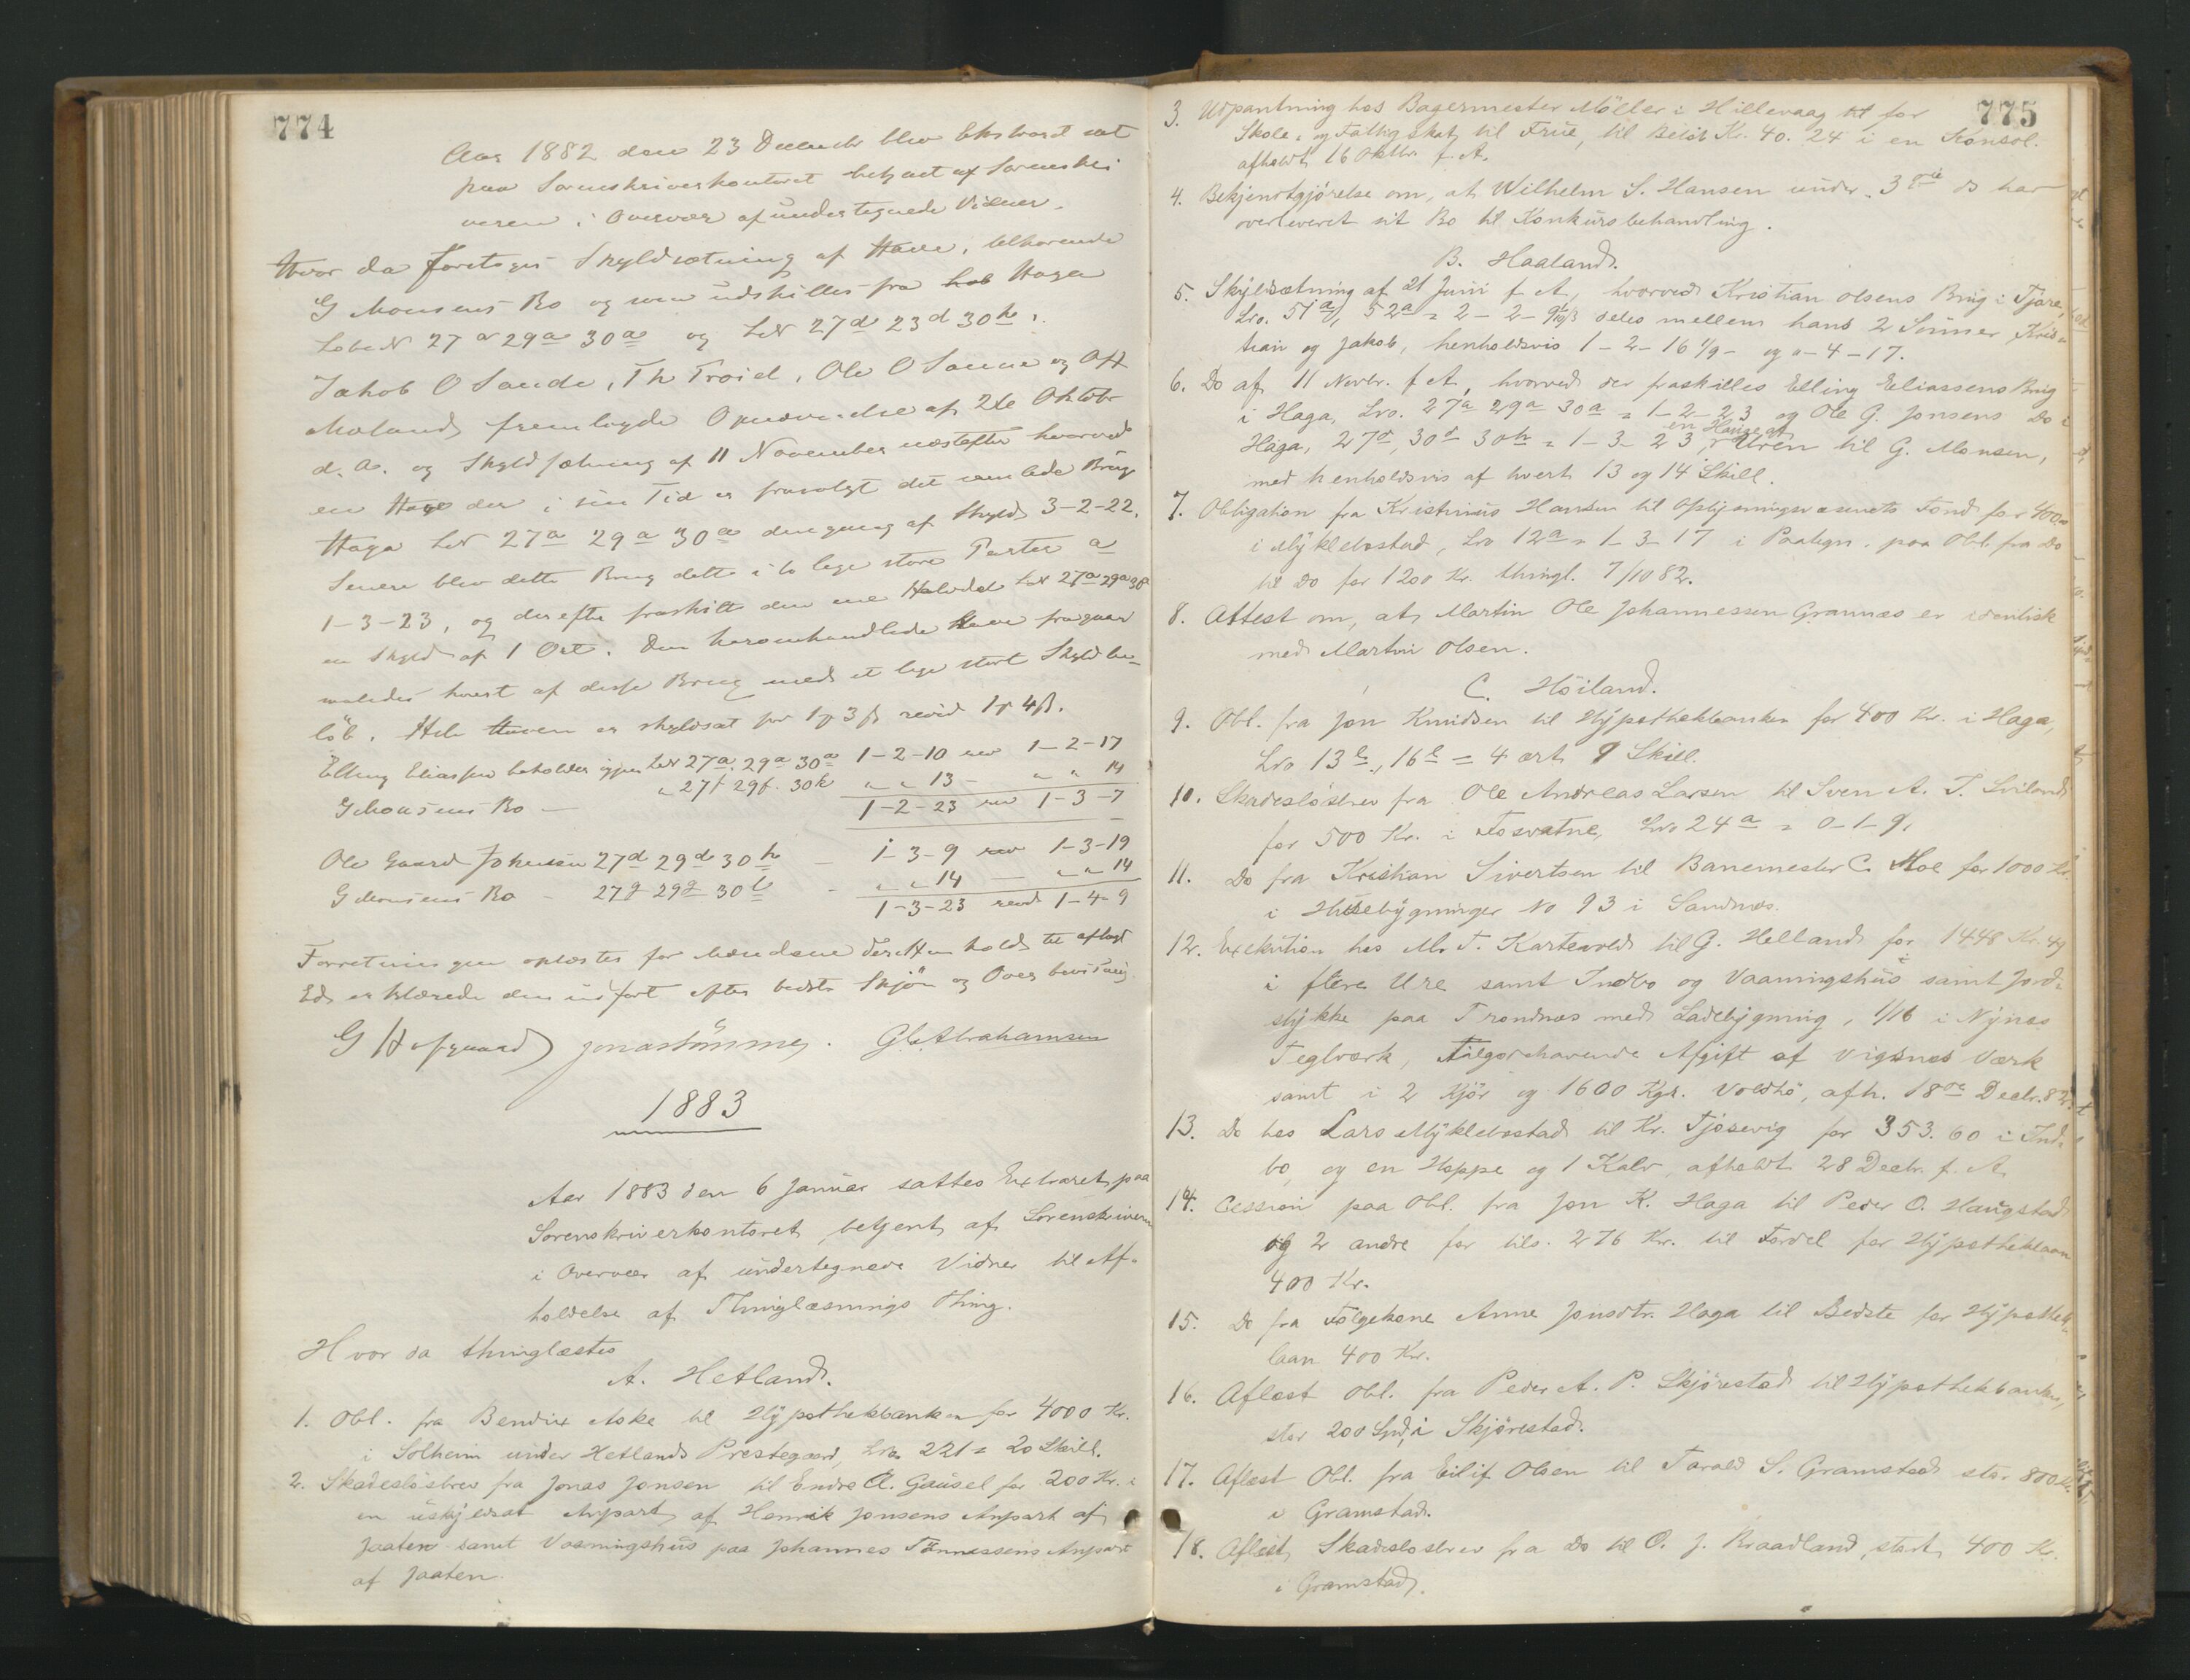 774
Aar 1882 den 23 December blev Ekstraret sat
paa Sorenskriverkontoret betjent af Sorenskri
veren i Overvær af undertegnede Vidner.
Hvor da foretoges Skyldsætning af Have, tilhørende
G Monsens Bo og som udskilles fra Haga
Løbe No 27 a 29a 30a og LNo 27d 23d 30h.
Jakob O Sande, Th Troid, Ole O Sømme og O H
Moland fremlagde Opnævnelse af 2de Oktobr
d. A. og Skyldsætning af 11 November næstefter hvorved
en Have der i sin Tid er frasolgt det samlede Brug
Haga LNo 27a 29a 30a dengang af Skyld 3-2-22.
Senere blev dette Brug delt i to lige store Parter a
1-3-23, og derefter fraskilt den ene Halvdel LNo 27a 29a 30a
en Skyld af 1 Ort. Den heromhandlede Have fragaar
saaledes hvert af disse Brug med et lige stort Skyldbe-
löb. Hele Haven er skyldsat for 1 3 ß revid 1 4ß.
Elling Eliassen beholder igjen LNo 27a. 29a 30a 1-2-10 rev 1-2-17
G Monsens Bo — " 27f 29f. 30k " " 13 — " " 14
1-2-23 rev 1-3-7
Ole Gaard Johnsen 27d 29d 30h — 1-3-9 rev 1-3-19
G Monsens Bo - 27g 29g 30l - " " 14 — " " 14
1-3-23 revd 1-4-9
Forretningen oplæstes for Mændene der i Henhold til aflagt
Ed erklærede den udført efter bedste Skjön og Overbevisning.
G Hofgaard Jonas Sömme. Gl Abrahamsen
1883
Aar 1883 den 6 Januar sattes Extraret paa
Sorenskriverkontoret, betjent af Sorenskriveren
i Overvær af undertegnede Vidner til Af-
holdelse af Thinglæsnings Thing.
Hvor da thinglæstes
A. Hetland.
1. Obl. fra Bendix Aske til Hypothekbanken for 4000 Kr.
i Solheim under Hetlands Prestegaard, Lno 221 = 20 Skill.
2. Skadeslösbrev fra Jonas Jonsen til Endre A. Gausel for 200 Kr. i
en uskyldsat Anpart af Henrik Jonsens Anpart af
Jaaten samt Vaaningshus paa Johannes Tönnessens Anpart
af Jaaten.
775
3. Udpantning hos Bagermester Möller i Hillevaag for
Skole- og Fattigskat til Frue, til Belöb Kr. 40. 24 i en Konsol.
afholdt 16 Oktbr. f. A.
4. Bekjendtgjörelse om, at Wilhelm S. Hansen under 3die ds har
overleveret sit Bo til Konkursbehandling.
B. Haaland.
5. Skyldsætning af 21 Juni f A, hvorved Kristian Olsens Brug i Tjöre,
Lno. 51a, 52a = 2-2-9 deles mellem hans 2 Sönner Kris-
tian og Jakob, henholdsvis 1-2-16 1/9 - og "-4-17.
6. Do af 11 Novbr. f A, hvorved der fraskilles Elling Eliassens Brug
i Haga, Lno. 27a 29a 30a = 1-2-23 og Ole G. Jonsens Do i
Haga, 27d, 30d 30h = 1-3-23, en Hauge af Uren til G. Monsen,
med henholdsvis af hvert 13 og 14 Skill.
7. Obligation fra Kristinius Hansen til Oplysningsvæsenets Fond for 400
i Myklebostad, Lno 12a = 1-3-17 i Paategn. paa Obl. fra Do
til Do for 1200 Kr. thingl. 7/10 82.
8. Attest om, at Martin Ole Johannessen Grannæs er identisk
med Martin Olsen.
C. Höiland.
9. Obl. fra Jon Knudsen til Hypothekbanken for 400 Kr. i Haga,
Lno 13b, 16b = 4 ort 9 Skill.
10. Skadeslösbrev fra Ole Andreas Larsen til Sven A. T. Sviland
for 500 Kr. i Fosvatne, Lno 24a = 0-1-9.
11. Do fra Kristian Sivertsen til Banemester C. Moe for 1000 Kr
i Husebygninger No 93 i Sandnæs.
12. Exekution hos M. T. Kartevold til G. Helland for 1448 Kr. 49
i flere Ure samt Indbo og Vaaningshus samt Jord-
stykke paa Trondnæs med Ladebygning, 1/16 i Nynæs
Teglværk, Tilgodehavende Afgift af Vigsnæs Værk
samt i 2 Kjör og 1600 Kgr. Voldhö, afh. 18de Decbr. 82.
13. Do hos Lars Myklebostad til Kr. Tjösevig for 353. 60 i Ind-
bo, og en Hoppe og 1 Kalv, afholdt 28 Decbr. f. A.
14. Cession paa Obl. fra Jon K. Haga til Peder O. Haugstad
og 2 andre for tils. 276 Kr. til Fordel for Hypotheklaan
400 Kr.
15. Do fra Folgekone Anne Jonsdtr. Haga til Bedste for Hypothek-
laan 400 Kr.
16. Aflæst Obl. fra Peder A. P. Skjörestad til Hypothekbanken,
stor 200 Spd, i Skjörestad.
17. Aflæst Obl. fra Eilif Olsen til Tarald S. Gramstad stor 800 Kr.
i Gramstad.
18. Aflæst Skadeslosbrev fra Do til O. J. Braadland, stort 400 Kr.
i Gramstad.